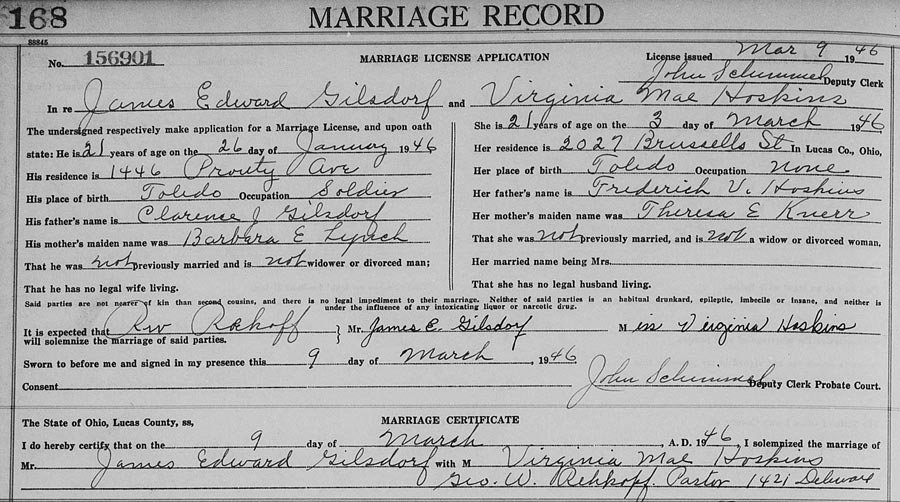 168 MARRIAGE RECORD
88845
No. 156901 MARRIAGE LICENSE APPLICATION License issued Mar 9 1946
John Schimmel Deputy Clerk
In re James Edward Gilsdorf and Virginia Mae Hoskins
The undersigned respectively make application for a Marriage License, and upon oath
state: He is 21 years of age on the 26 day of January 1946
His residence is 1446 Prouty Ave
His place of birth Toledo Occupation Soldier
His father's name is Clarence J Gilsdorf
His mother's maiden name was Barbara E Lynch
That he was not previously married and is not widower or divorced man;
That he has no legal wife living.
She is 21 years of age on the 3 day of March 1946
Her residence is 2027 Brussells St In Lucas Co., Ohio,
Her place of birth Toledo Occupation None
Her father's name is Frederich V. Hoskins
Her mother's maiden name was Theresa E Knerr
That she was not previously married, and is not a widow or divorced woman,
Her married name being Mrs.
That she has no legal husband living.
Said parties are not nearer of kin than second cousins, and there is no legal impediment to their marriage. Neither of said parties is an habitual drunkard, epileptic, imbecile or insane, and neither is
under the influence of any intoxicating liquor or narcotic drug.
It is expected that Rev Rehkoff } Mr. James E. Gilsdorf Miss Virginia Hoskins
will solemnize the marriage of said parties.
Sworn to before me and signed in my presence this 9 day of March, 1946
Consent John Schimmel Deputy Clerk Probate Court.
The State of Ohio, Lucas County, ss, MARRIAGE CERTIFICATE
I do hereby certify that on the 9 day of March, A.D. 1946, I solemnized the marriage of
Mr. James Edward Gilsdorf with M Virginia Mae Hoskins
Geo. W. Rehkopf. Pastor 1421 Delware